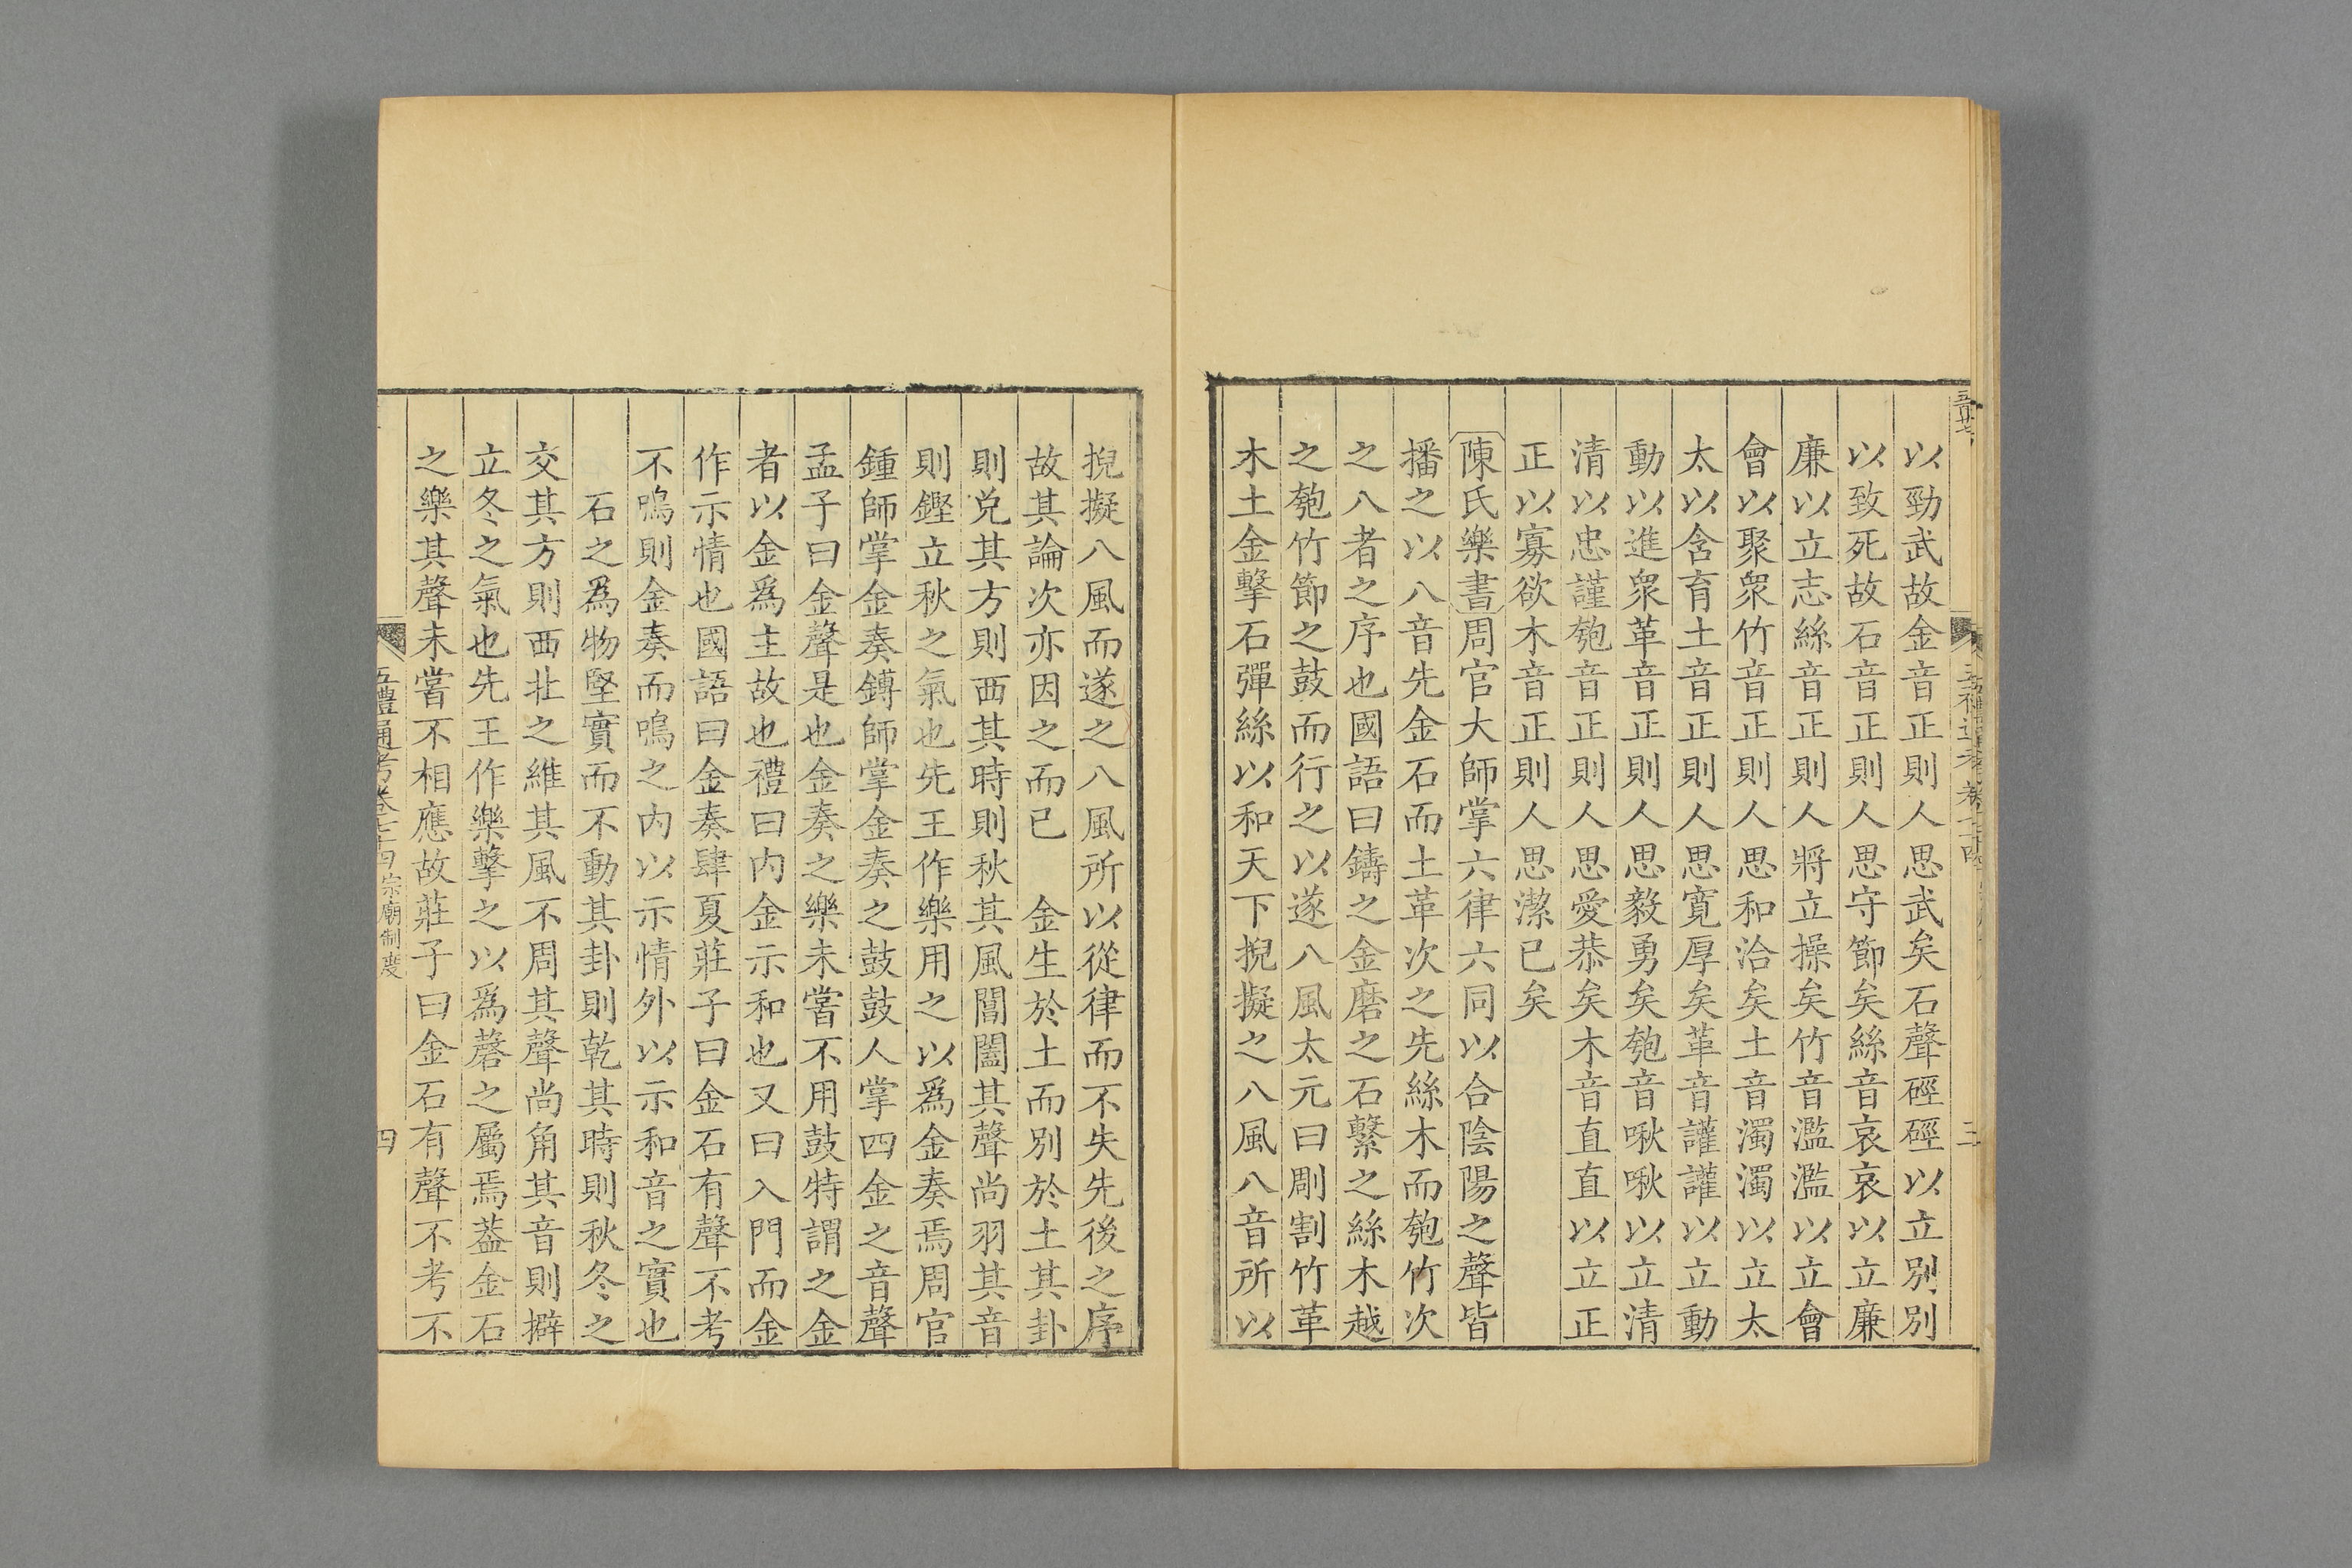 以勁武故金音正則人思武矣石聲硜硜以立別別
以致死故石音正則人思守節矣絲音哀哀以立廉
廉以立志絲音正則人將立操矣竹音濫濫以立會
會以聚衆竹音正則人思和洽矣土音濁濁以立太
太以含育土音正則人思寬厚矣革音讙讙以立動
動以進衆革音正則人思毅勇矣匏音啾啾以立清
清以忠謹匏音正則人思愛恭矣木音直直以立正
正以寡欲木音正則人思潔己矣
陳氏樂書周官大師掌六律六同以合陰陽之聲皆
播之以八音先金石而土革次之先絲木而匏竹次
之八者之序也國語曰鑄之金磨之石繫之絲木越
之匏竹節之鼓而行之以遂八風太元曰剛割竹革
木土金擊石彈絲以和天下掜擬之八風八音所以
掜擬八風而遂之八風所以從律而不失先後之序
故其論次亦因之而已　金生於土而別於土其卦
則兌其方則西其時則秋其風閶闔其聲尚羽其音
則鏗立秋之氣也先王作樂用之以爲金奏焉周官
鍾師掌金奏鎛師掌金奏之鼓鼓人掌四金之音聲
孟子曰金聲是也金奏之樂未嘗不用鼓特謂之金
者以金爲主故也禮曰内金示和也又曰入門而金
作示情也國語曰金奏肆夏莊子曰金石有聲不考
不鳴則金奏而鳴之内以示情外以示和音之實也
石之爲物堅實而不動其卦則乾其時則秋冬之
交其方則西北之維其風不周其聲尚角其音則擗
立冬之氣也先王作樂擊之以爲磬之屬焉葢金石
之樂其聲未嘗不相應故莊子曰金石有聲不考不
五禮通考卷七十四 宗廟制度
四